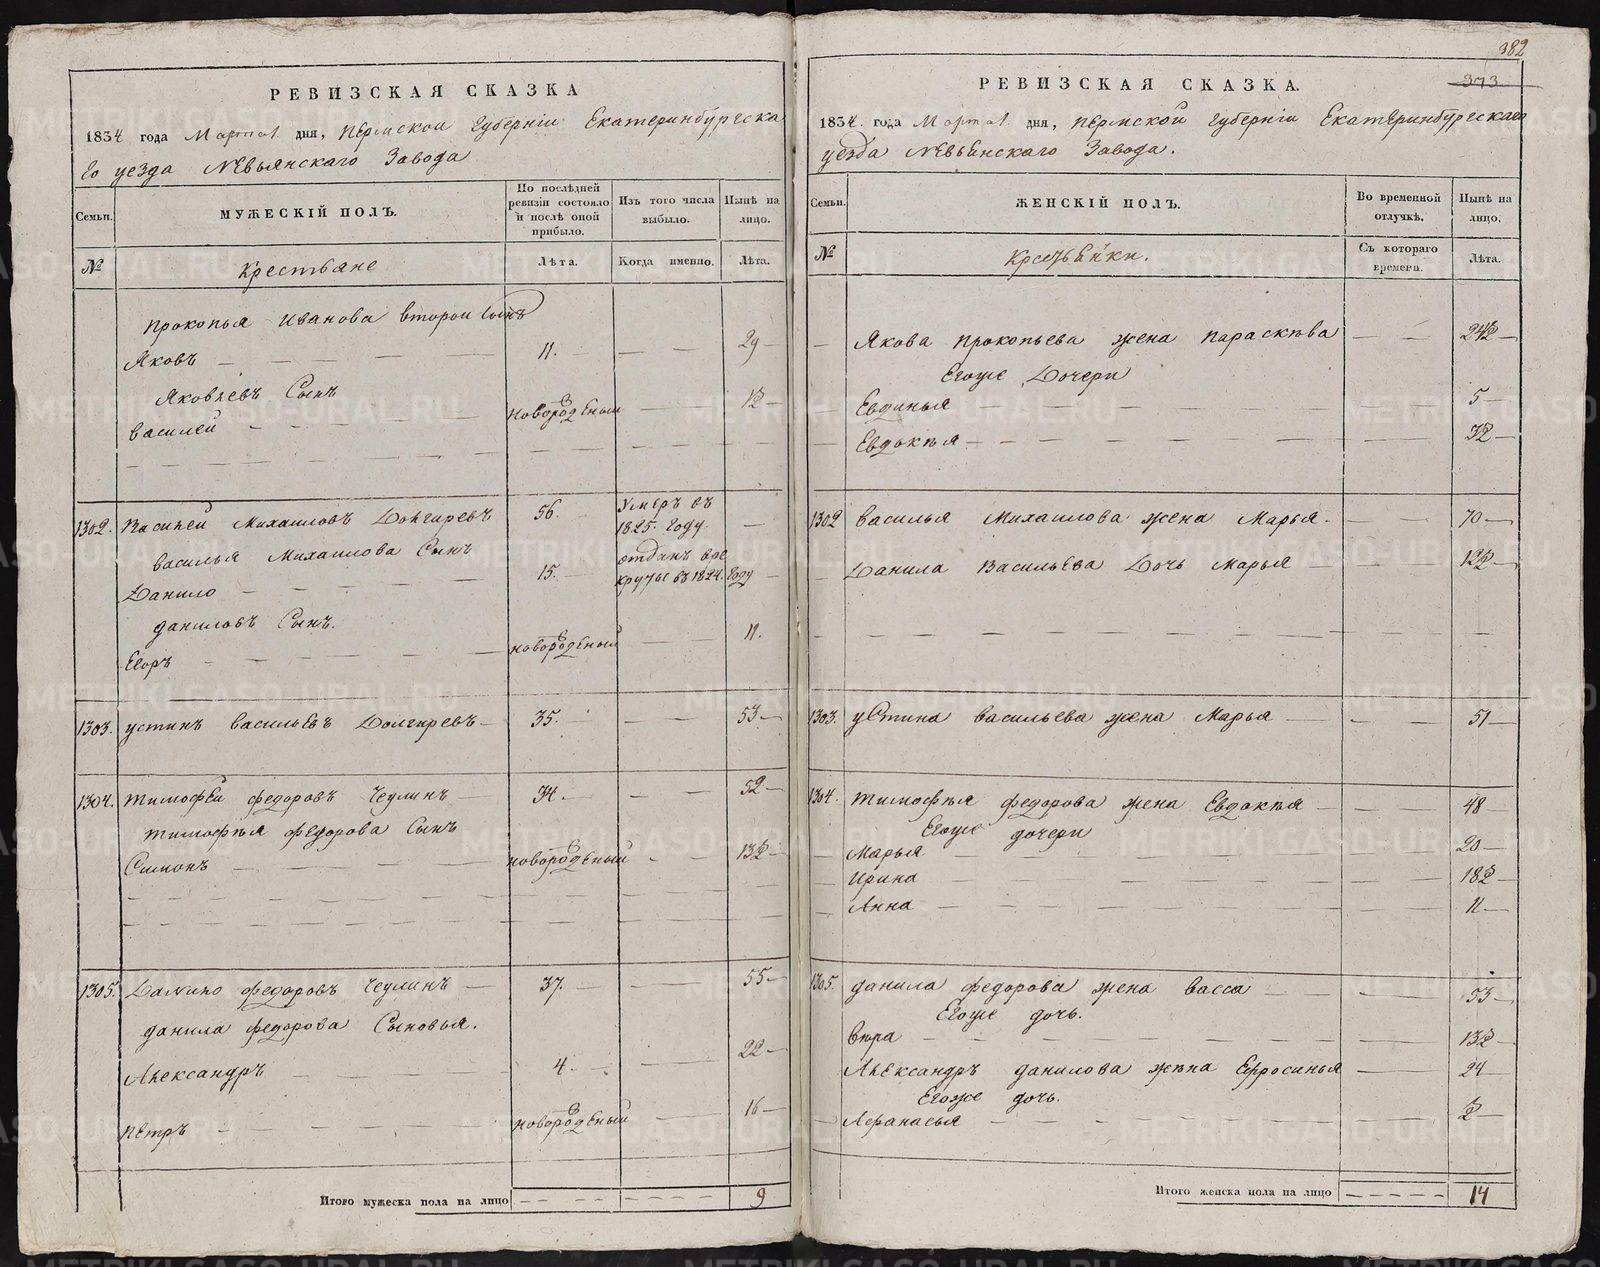 382
373
РЕВИЗСКАЯ СКАЗКА
1834 года Марта 1 дня, Пермской Губерніи Екатеринбургска
го уезда Невьянскаго Завода
Семьи.
МУЖЕСКІЙ ПОЛЪ.
По послѣдней ревизіи состояло и послѣ оной прибыло.
Изъ того числа выбыло.
Нынѣ на лицо.
№
Крестьяне
Лѣта.
Когда именно.
Лѣта.
Прокопья Иванова второй Сынъ
Яковъ — 11. — — 29
Яковлевъ Сынъ
Василей — новорожденый — 1½
1302. Василей Михаиловъ Долгиревъ 56. Умеръ въ 1825. году. —
Василья Михаилова Сынъ
Данило — 15. отданъ вре
круты въ 1824. году —
Даниловъ Сынъ.
Егоръ — новорожденый — 11.
1303. Устинъ Васильевъ Долгиревъ — 35. — — 53
1304. Тимофей Федоровъ Чеулинъ 34. — — 52
Тимофѣя Федорова Сынъ
Симонъ — новорожденый — 13½
1305. Данило Федоровъ Чеулинъ — 37. — — 55
Данила Федорова Сыновья.
Александръ — 4. — 22
Петръ — новорожденый — 16
Итого мужеска пола на лицо — 9
РЕВИЗСКАЯ СКАЗКА.
1834. года Марта 1. дня, Пермской Губерніи Екатеринбургскаго
уезда Невьянскаго Завода.
Семьи.
ЖЕНСКІЙ ПОЛЪ.
Во временной отлучкѣ.
Нынѣ на лицо.
№
Съ котораго времени.
Лѣта.
— Якова Прокопьева жена Параскѣва — — 24½
Егоже Дочери
Евдинья — 5
Евдокѣя — 3½
1302 Василья Михаилова жена Марья. — 70
Данила Васильева Дочь Марья — 12½
1303. Устина Васильева жена Марья — — 51
1304. Тимофѣя Федорова жена Евдокѣя — — 48
Егоже дочери
Марья — 20
Ирина — 18½
Анна — 11
1305. Данила Федорова жена Васса — 53
Егоже дочь.
Вѣра — 13½
Александръ Данилова жѣна Ефросинья — 24
Егоже дочь.
Афанасья — ½
Итого женска пола на лицо — 14
METRIKI.GASO-URAL.RU